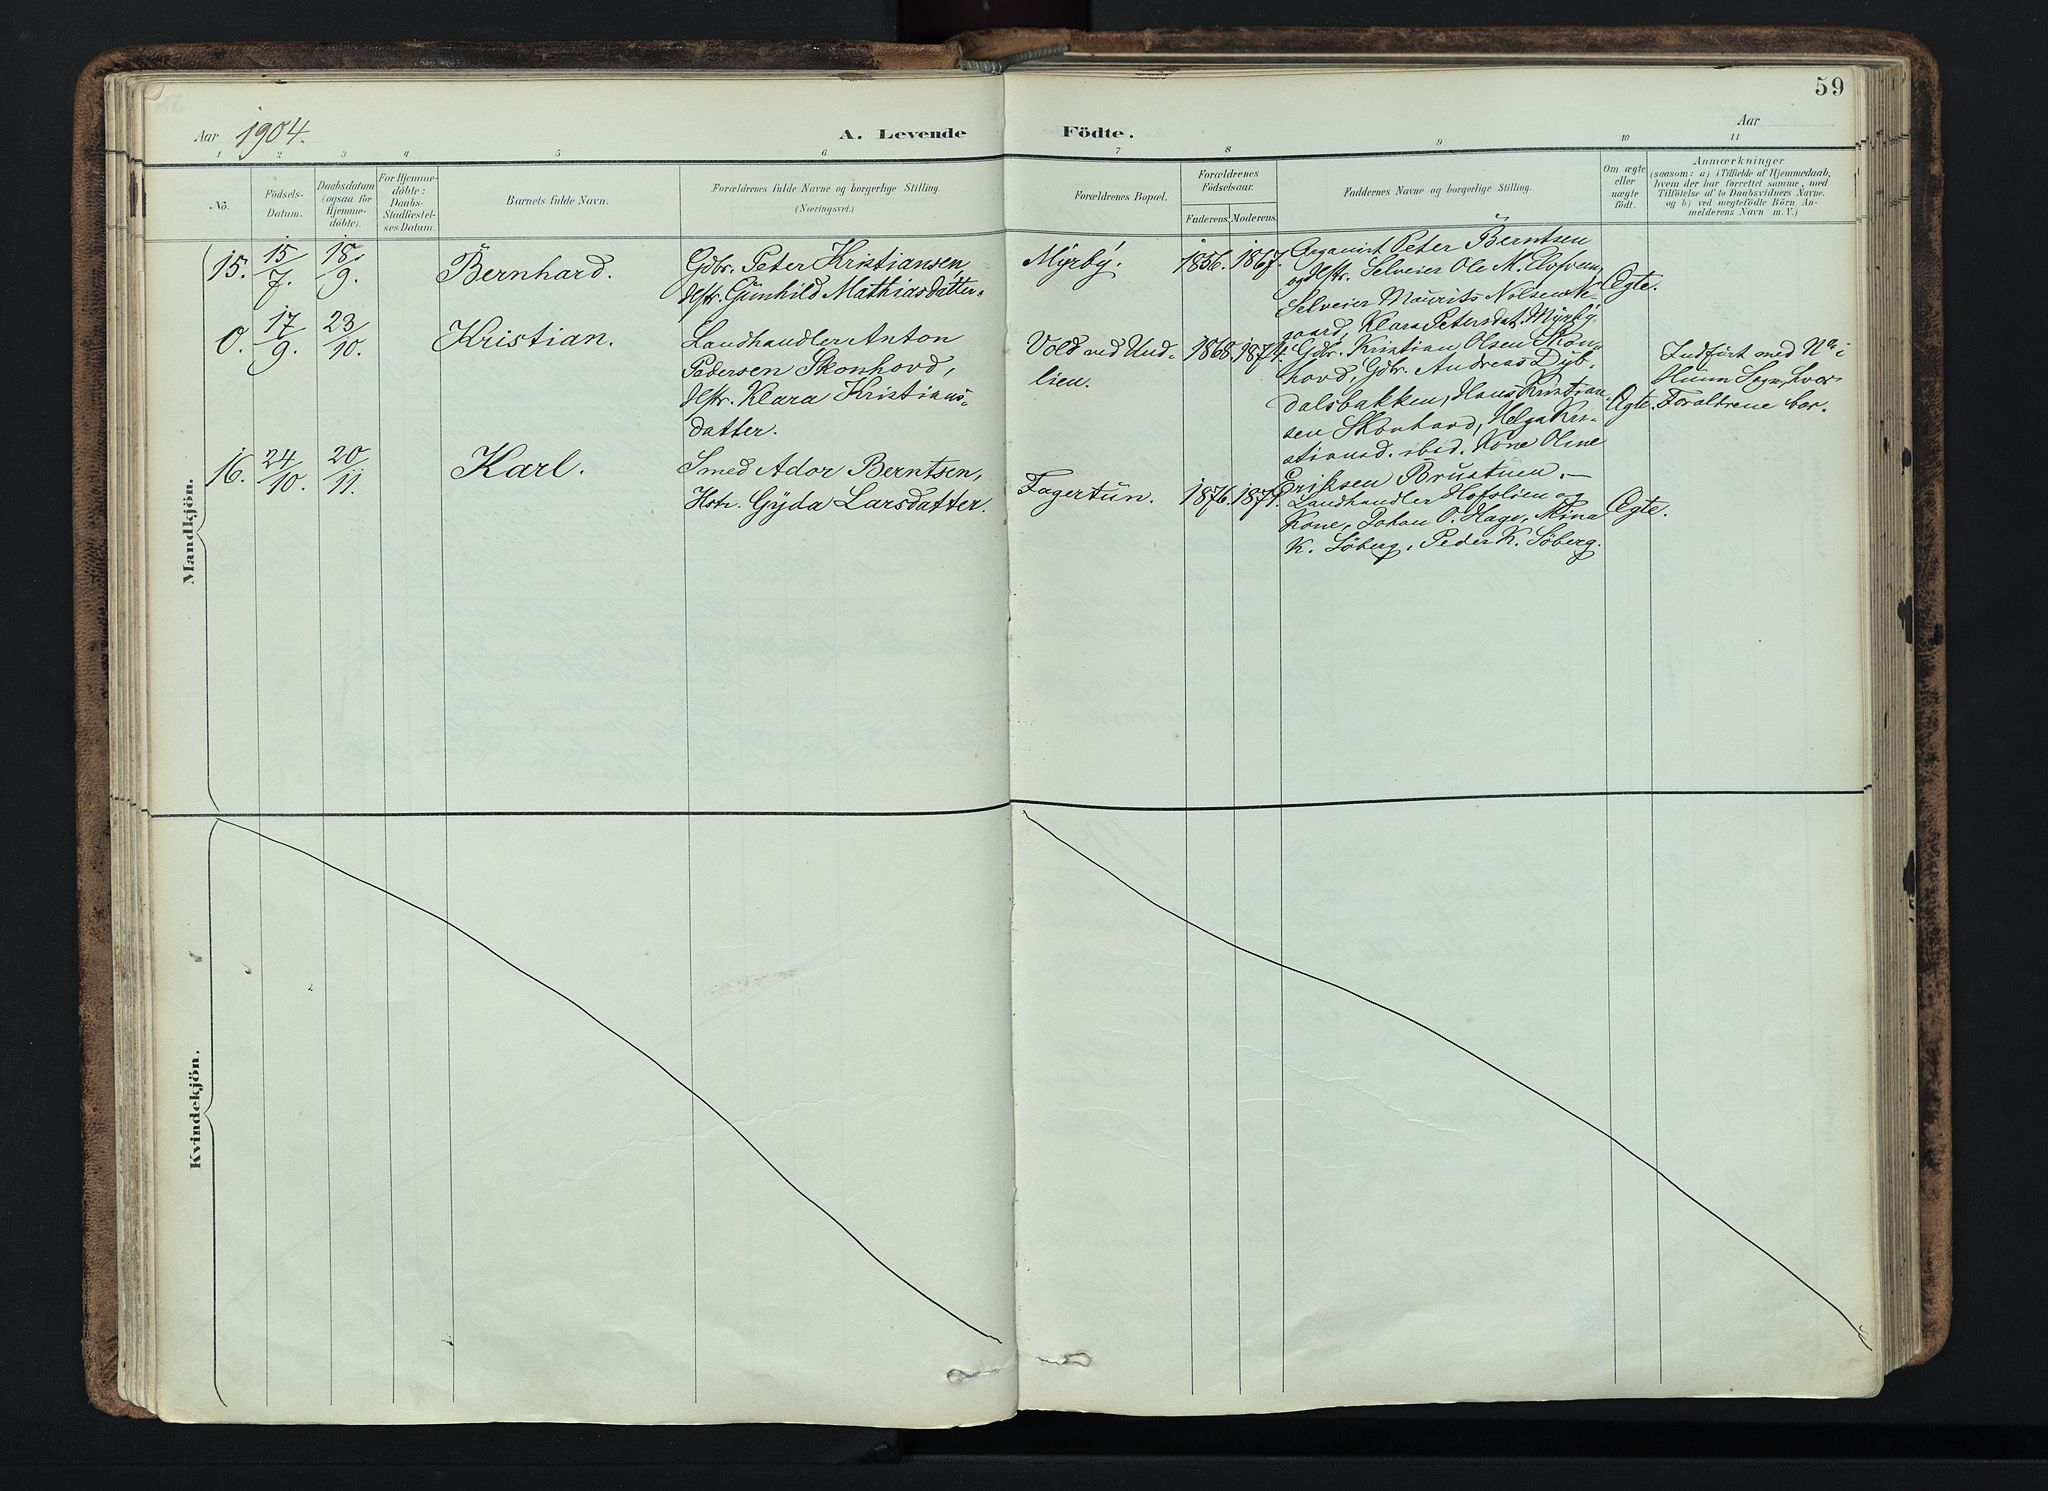 59
Aar 1904.
A. Levende Födte.
Aar
1 2 3 4 5 6 7 8 9 10 11
Nö.
Födsels-
Datum.
Daabsdatum
(ogsaa for
Hjemme-
döbte).
For Hjemme-
döbte:
Daabs-
Stadfæstel-
ses Datum.
Barnets fulde Navn.
Forældrenes fulde Navne og borgerlige Stilling.
(Næringsvei.)
Forældrenes Bopæl.
Forældrenes
Födselsaar.
Faderens. Moderens.
Faddernes Navne og borgerlige Stilling.
Om ægte
eller
uægte
födt.
Anmærkninger
(saasom: a) i Tilfælde af Hjemmedaab,
hvem der har forrettet samme, med
Tilföielse af to Daabsvidners Navne.
og b) ved uægtefödte Börn An-
melderens Navn m. V.)
Mandkjön.
15. 15/7. 18/9. Bernhard.
Gdbr. Peter Kristiansen,
Hstr. Gunhild Mathiasdatter.
Myrby. 1856. 1867.
Organist Peter Berntsen
og Hstr. Selveier Ole M.
Selveier Maurits
gaard, Klara Petersdat. Myrby.
Ægte.
0. 17/9. 23/10. Kristian.
Landhandler Anton
Pedersen Skonhovd,
Hstr. Klara Kristians-
datter.
Vold ved Und-
lien.
1868. 1874.
Gdbr. Kristian Olsen Skon-
hovd, Gdbr. Andreas Dyb-
dalsbakken, Hans Kristian
sen Skonhovd, Helga Kri-
stiansd. ibid. Kone Oline
Eriksen
Ægte.
Indfört med No i
Hunn Sogn, hvor
Forældrene bor.
16. 24/10. 20/11. Karl.
Smed Ador Berntsen,
Hstr. Gyda Larsdatter.
Fagertun. 1876. 1871.
Landhandler Hofslöien og
Kone, Johan O. Hage, Mina
K. Söberg, Peder K. Söberg.
Ægte.
Kvindekjön.